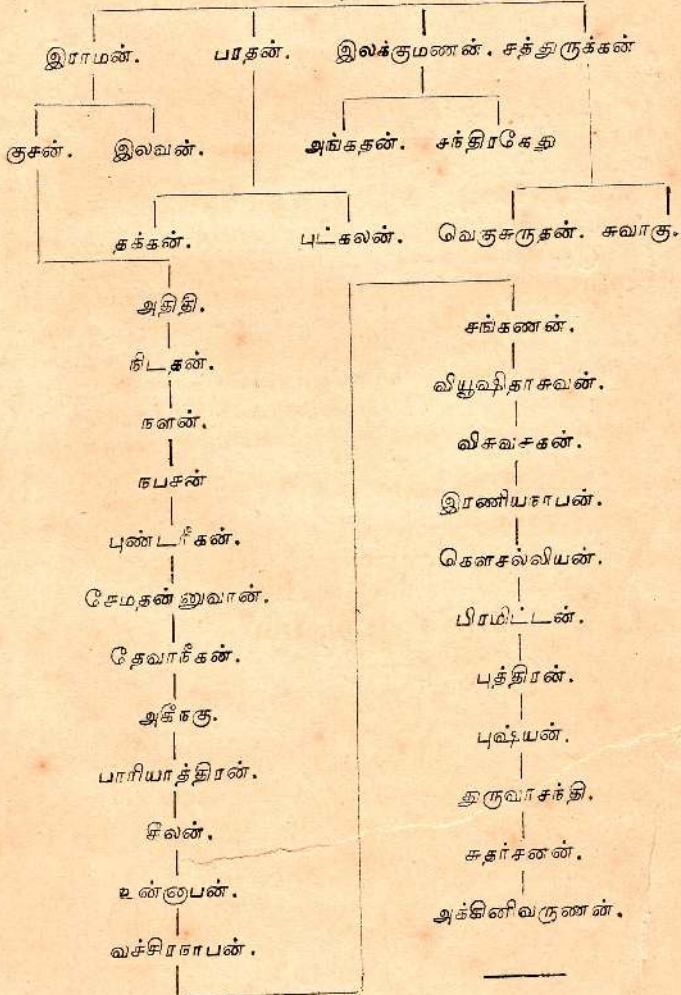 இராமன். பரதன். இலக்குமணன். சத்துருக்கன்
குசன். இலவன். அங்கதன். சந்திரகேது
தக்கன். புட்கலன். வெகுசுருதன். சுவாகு.
அதிதி.
நிடதன்.
நளன்.
நபசன்
புண்டரீகன்.
சேமதன்னுவான்.
தேவாநீகன்.
அகீநகு.
பாரியாத்திரன்.
சீலன்.
உன்னாபன்.
வச்சிரநாபன்.
சங்கணன்.
வியூஷிதாசுவன்.
விசுவசகன்.
இரணியநாபன்.
கௌசல்லியன்.
பிரமிட்டன்.
புத்திரன்.
புஷ்யன்.
துருவாசந்தி.
சுதர்சனன்.
அக்கினிவருணன்.